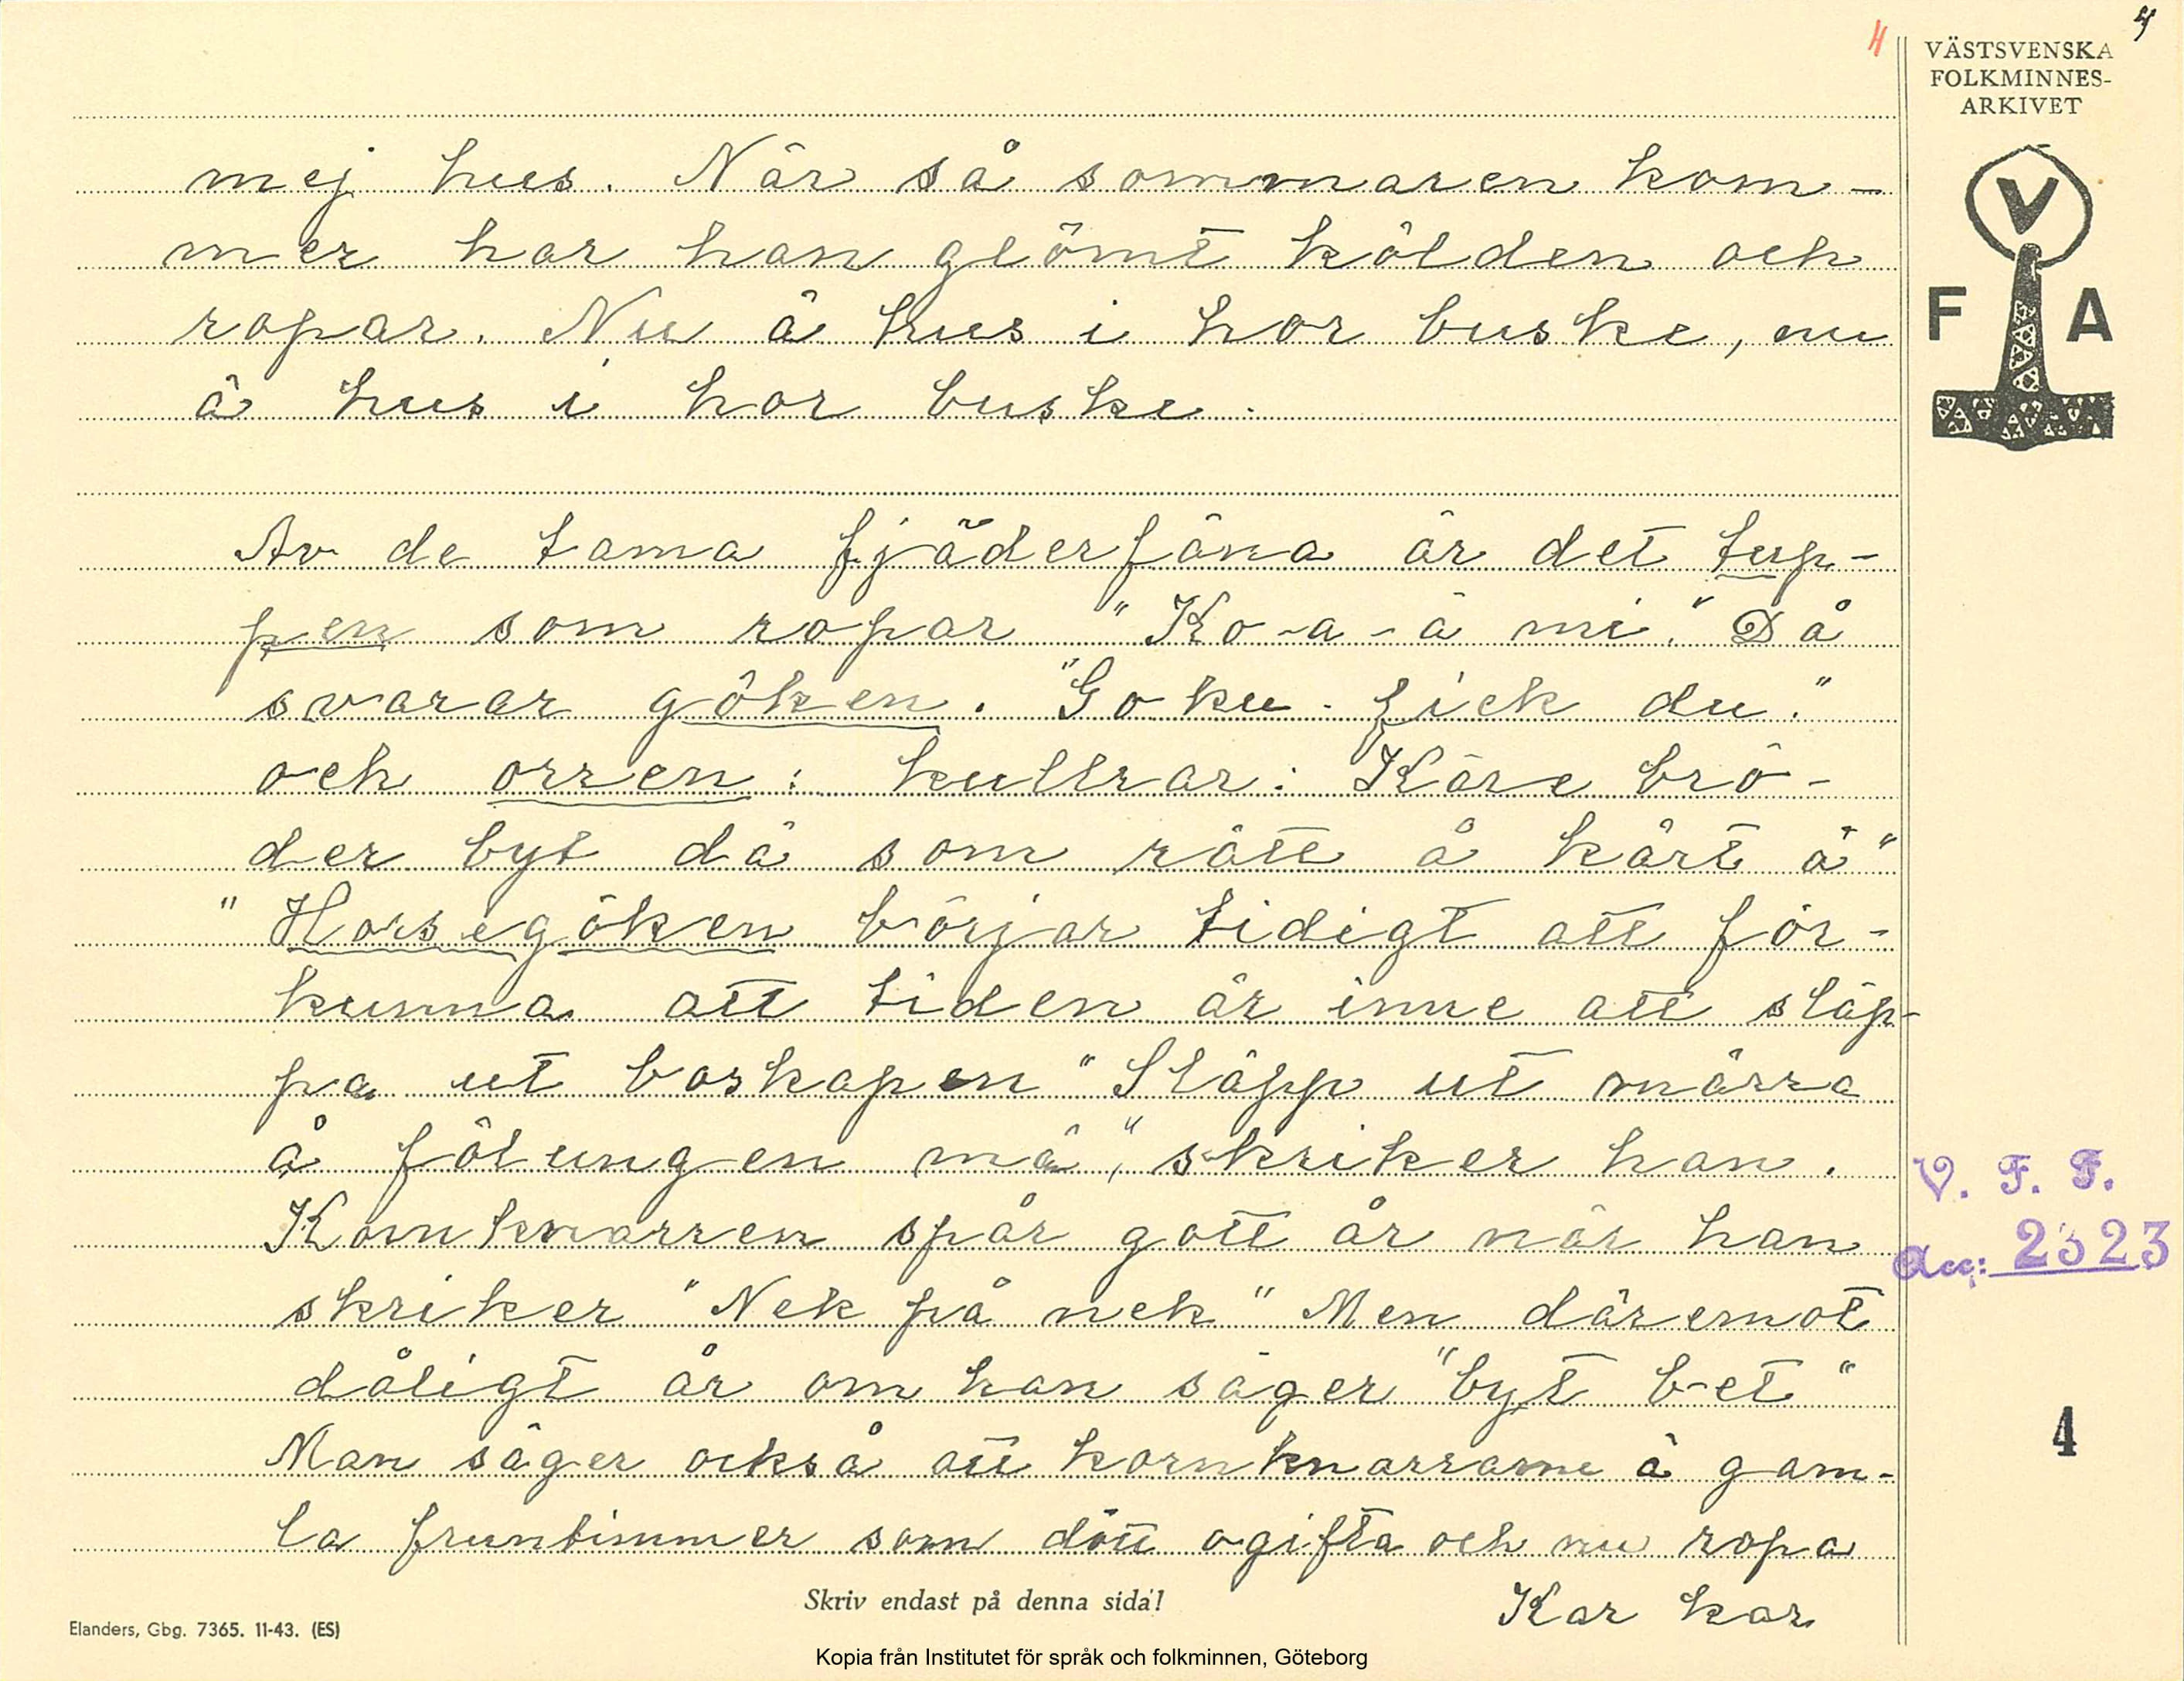 4
4
VÄSTSVENSKA
FOLKMINNES-
ARKIVET
V
F A
mej hus. När så sommaren kom-
mer har han glömt kölden och
ropar. Nu ä hus i hor buske, nu
ä hus i hor buske.
Av de tama fjäderfäna är det tup-
pen som ropar "Ko-a-ä mi." Då
svarar göken. "Goku fick du."
och orren: kullrar: Käre brö-
der byt dä som rätt å kärt ä"
"Horsegöken börjar tidigt att för-
kunna att tiden är inne att släp-
pa ut boskapen "Släpp ut märra
å fölungen mä," skriker han.
Kornknarren spår gott år när han
skriker "Nek på nek" Men däremot
dåligt år om han säger "byt bet"
Man säger också att kornknarrarne ä gam-
la fruntimmer som dött ogifta och nu ropa
Kar kar
V. F. F.
Acc: 2323
4
Skriv endast på denna sida!
Elanders, Gbg. 7365. 11-43. (ES)
Kopia från Institutet för språk och folkminnen, Göteborg